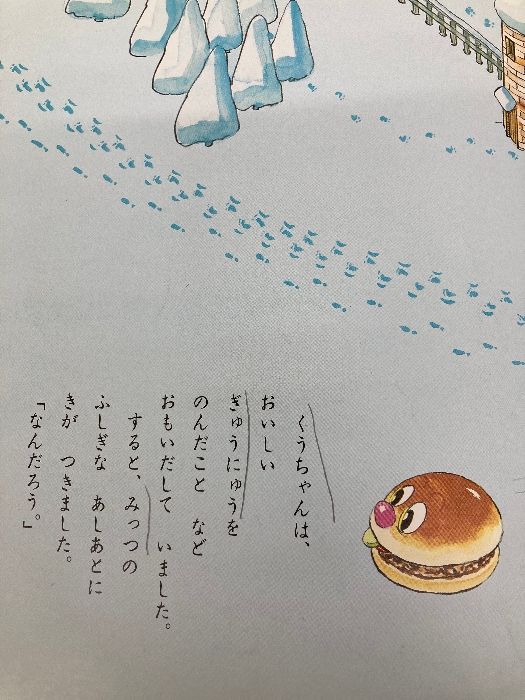 くうちゃんは、
おいしい
ぎゅうにゅうを
のんだこと　など
おもいだして　いました。
すると、みっつの
ふしぎな　あしあとに
きが　つきました。
「なんだろう。」